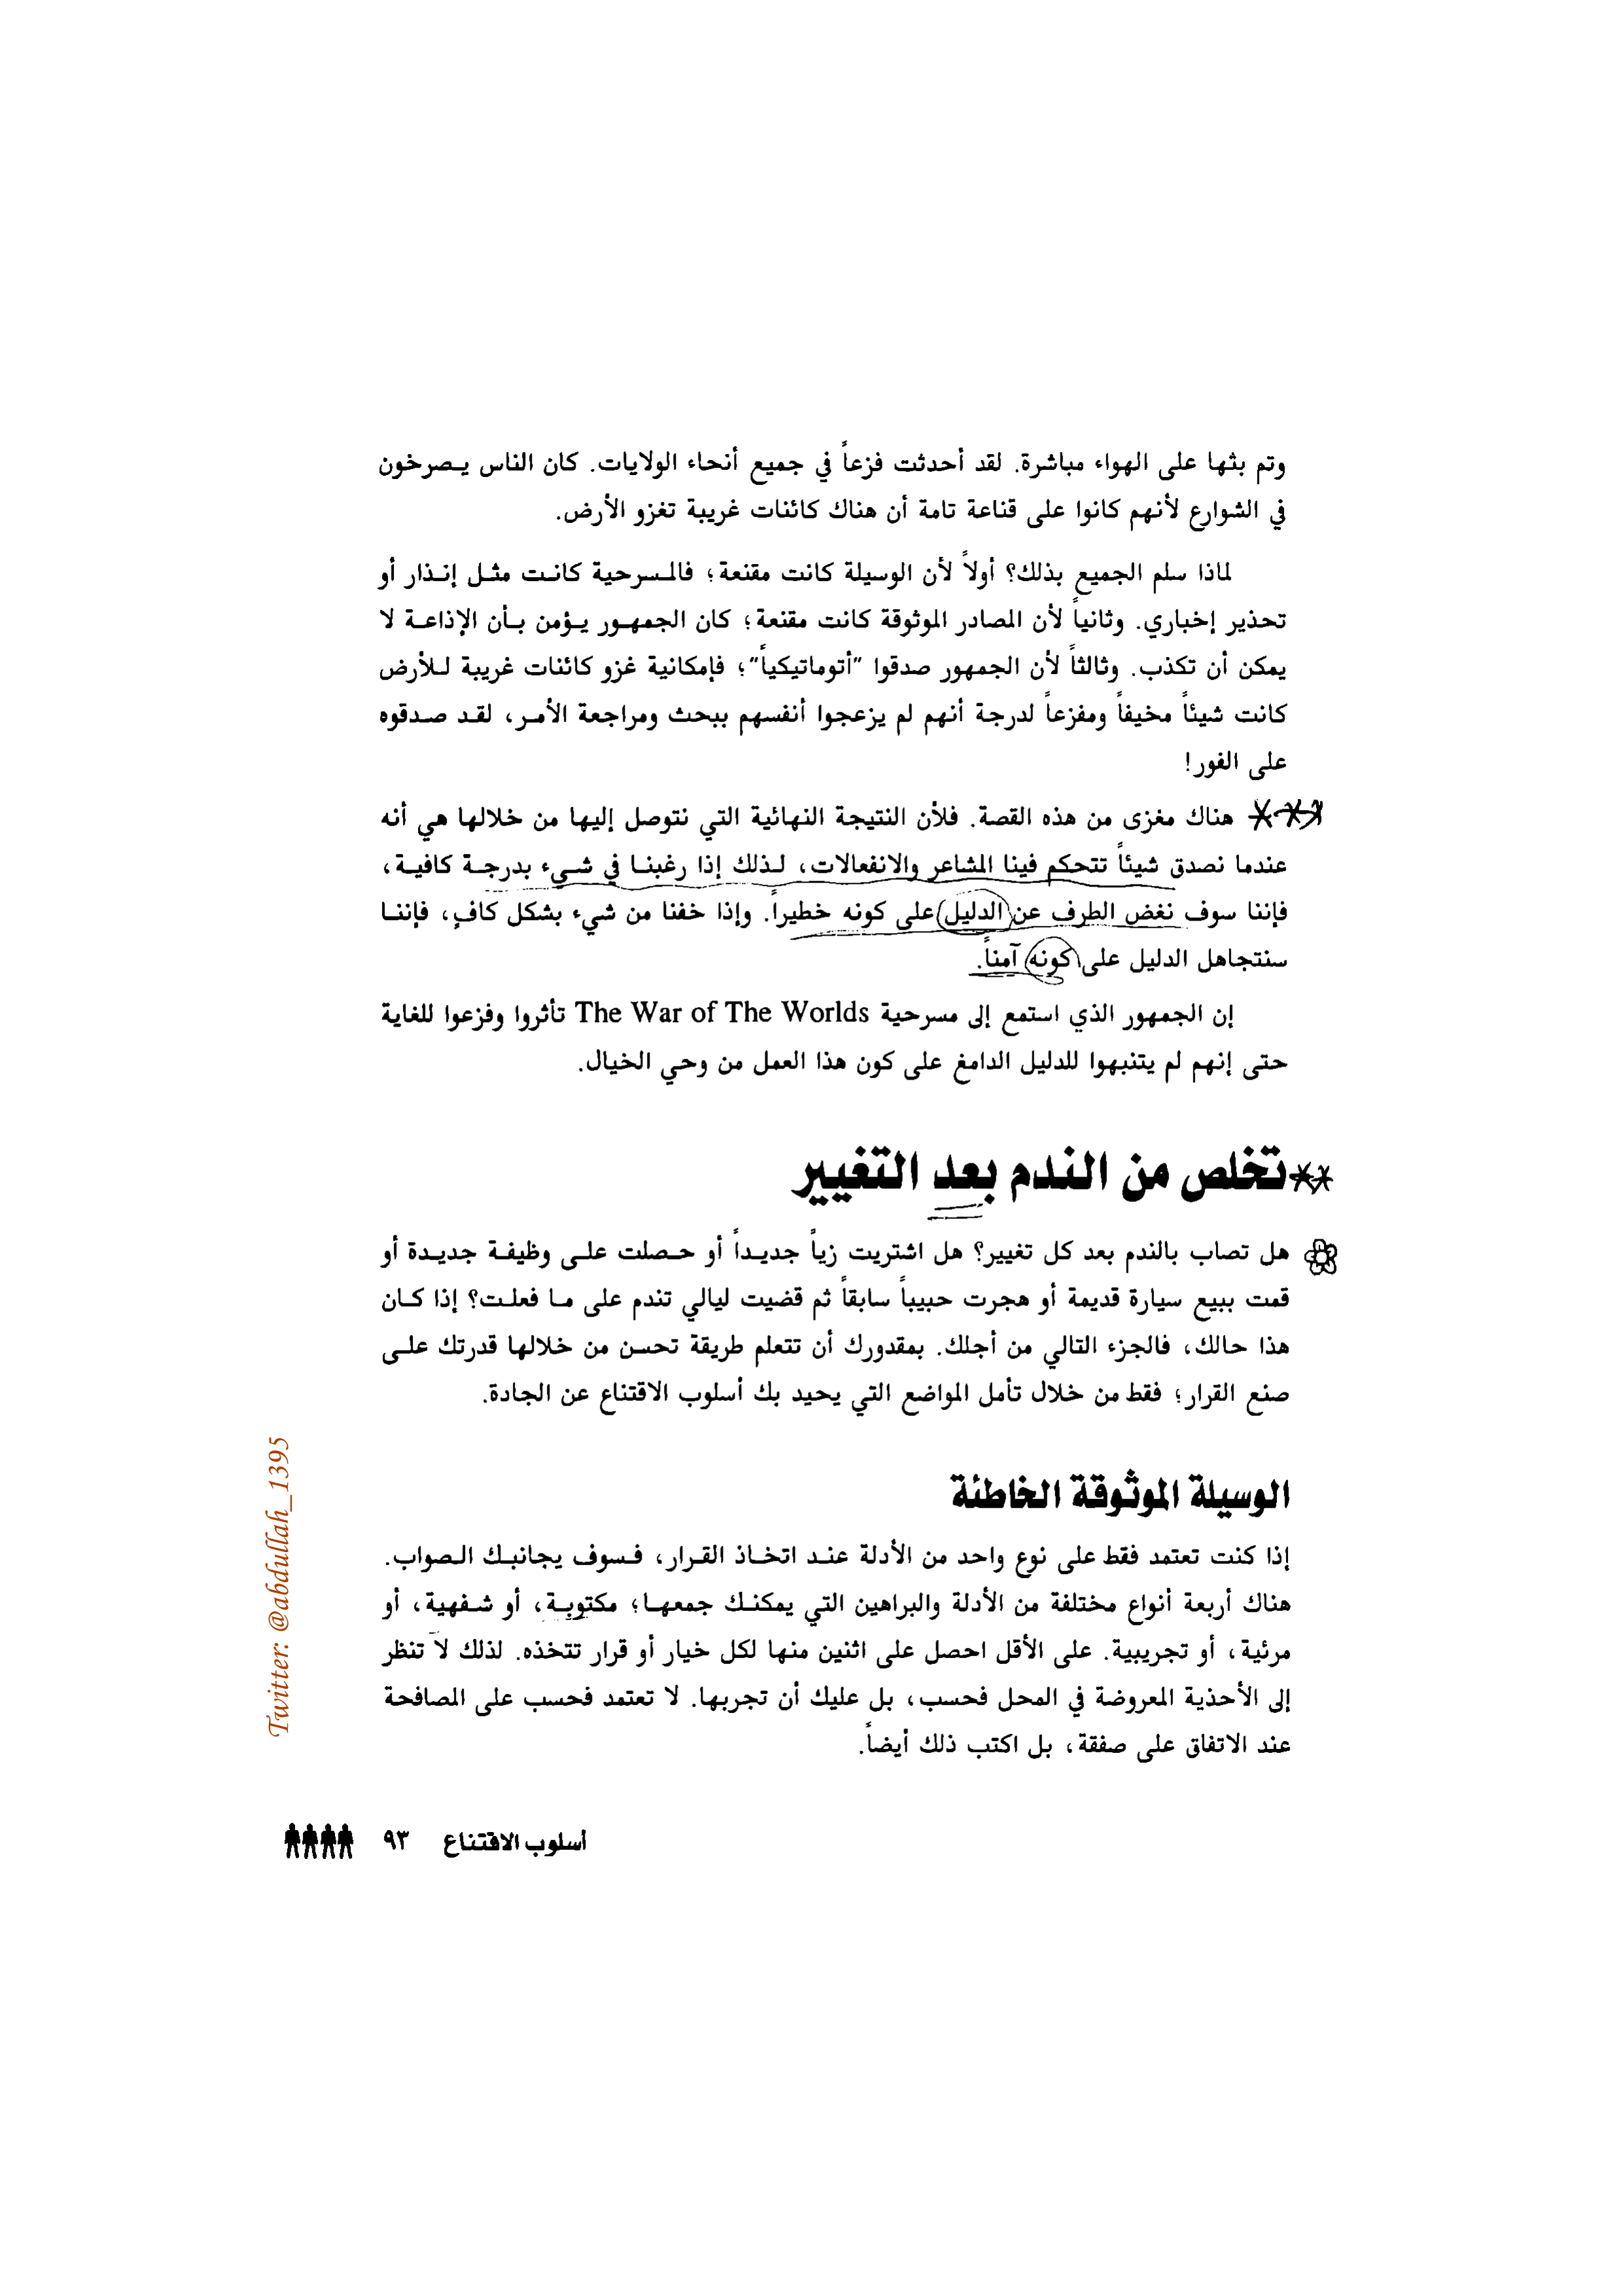 وتم بثها على الهواء مباشرة. لقد أحدثت فزعاً في جميع أنحاء الولايات. كان الناس يصرخون
في الشوارع لأنهم كانوا على قناعة تامة أن هناك كائنات غريبة تغزو الأرض.
لماذا سلم الجميع بذلك؟ أولاً لأن الوسيلة كانت مقنعة؛ فالمسرحية كانت مثل إنذار أو
تحذير إخباري. وثانياً لأن المصادر الموثوقة كانت مقنعة؛ كان الجمهور يؤمن بأن الإذاعة لا
يمكن أن تكذب. وثالثاً لأن الجمهور صدقوا "أتوماتيكياً"؛ فإمكانية غزو كائنات غريبة للأرض
كانت شيئاً مخيفاً ومفزعاً لدرجة أنهم لم يزعجوا أنفسهم ببحث ومراجعة الأمر، لقد صدقوه
على الفور!
هناك مغزى من هذه القصة. فلأن النتيجة النهائية التي نتوصل إليها من خلالها هي أنه
عندما نصدق شيئاً تتحكم فينا المشاعر والانفعالات، لذلك إذا رغبنا في شيء بدرجة كافية،
فإننا سوف نغض الطرف عن الدليل على كونه خطيراً. وإذا خفنا من شيء بشكل كافٍ، فإننا
سنتجاهل الدليل على كونه آمناً.
إن الجمهور الذي استمع إلى مسرحية The War of The Worlds تأثروا وفزعوا للغاية
حتى إنهم لم يتنبهوا للدليل الدامغ على كون هذا العمل من وحي الخيال.
تخلص من الندم بعد التغيير
هل تصاب بالندم بعد كل تغيير؟ هل اشتريت زياً جديداً أو حصلت على وظيفة جديدة أو
قمت ببيع سيارة قديمة أو هجرت حبيباً سابقاً ثم قضيت ليالي تندم على ما فعلت؟ إذا كان
هذا حالك، فالجزء التالي من أجلك. بمقدورك أن تتعلم طريقة تحسن من خلالها قدرتك على
صنع القرار؛ فقط من خلال تأمل المواضع التي يحيد بك أسلوب الاقتناع عن الجادة.
الوسيلة الموثوقة الخاطئة
إذا كنت تعتمد فقط على نوع واحد من الأدلة عند اتخاذ القرار، فسوف يجانبك الصواب.
هناك أربعة أنواع مختلفة من الأدلة والبراهين التي يمكنك جمعها؛ مكتوبة، أو شفهية، أو
مرئية، أو تجريبية. على الأقل احصل على اثنين منها لكل خيار أو قرار تتخذه. لذلك لا تنظر
إلى الأحذية المعروضة في المحل فحسب، بل عليك أن تجربها. لا تعتمد فحسب على المصافحة
عند الاتفاق على صفقة، بل اكتب ذلك أيضاً.
أسلوب الاقتناع ٩٣
Twitter: @abdullah_1395